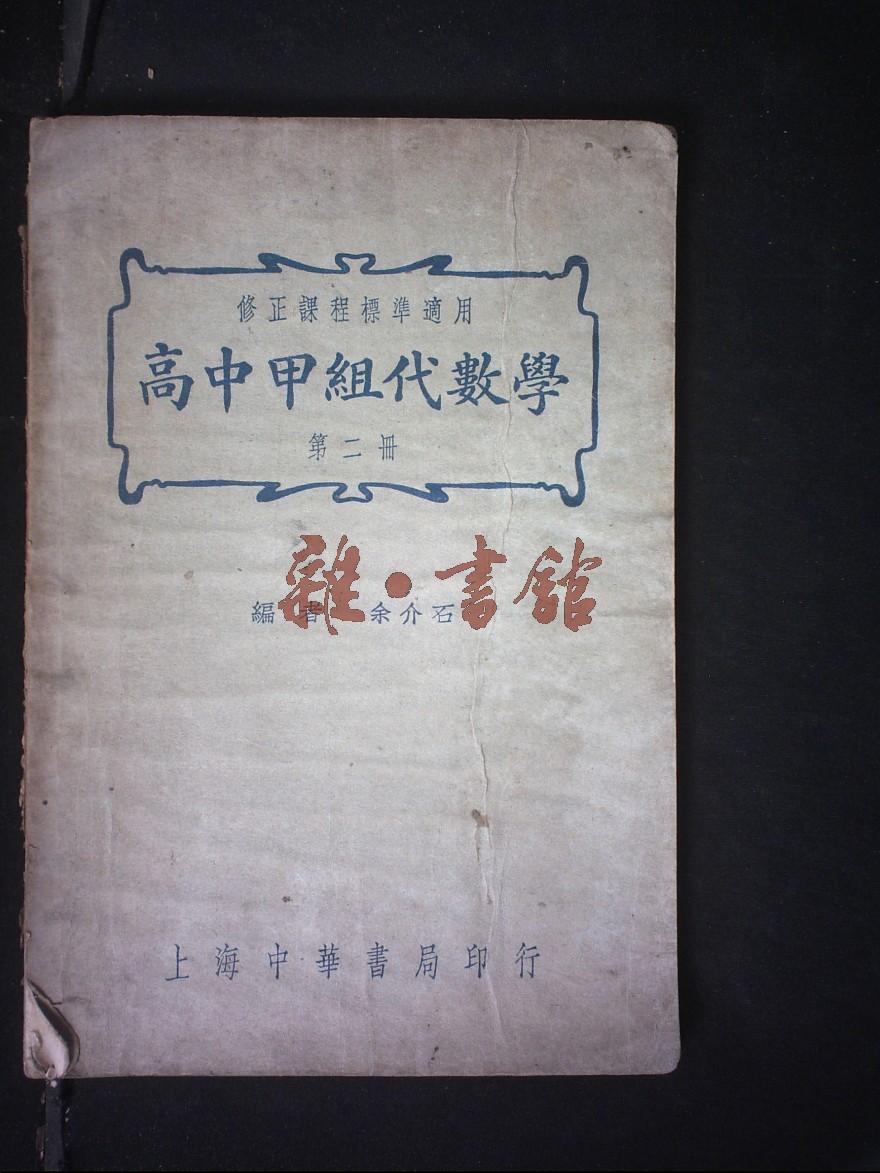 修正課程標準適用
高中甲組代數學
第二冊
雜·書館
編者 余介石
上海中華書局印行